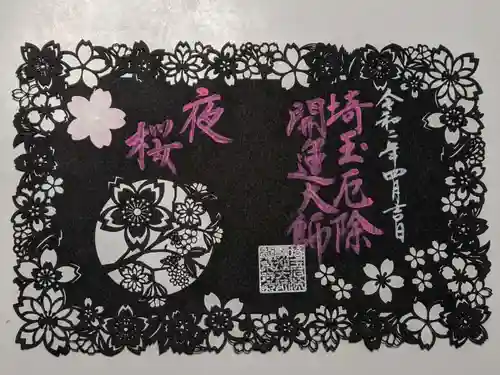 令和二年四月吉日
埼玉厄除
開運大師
夜
桜